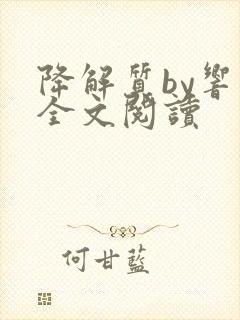 降解質by響
全文閱讀
何甘藍